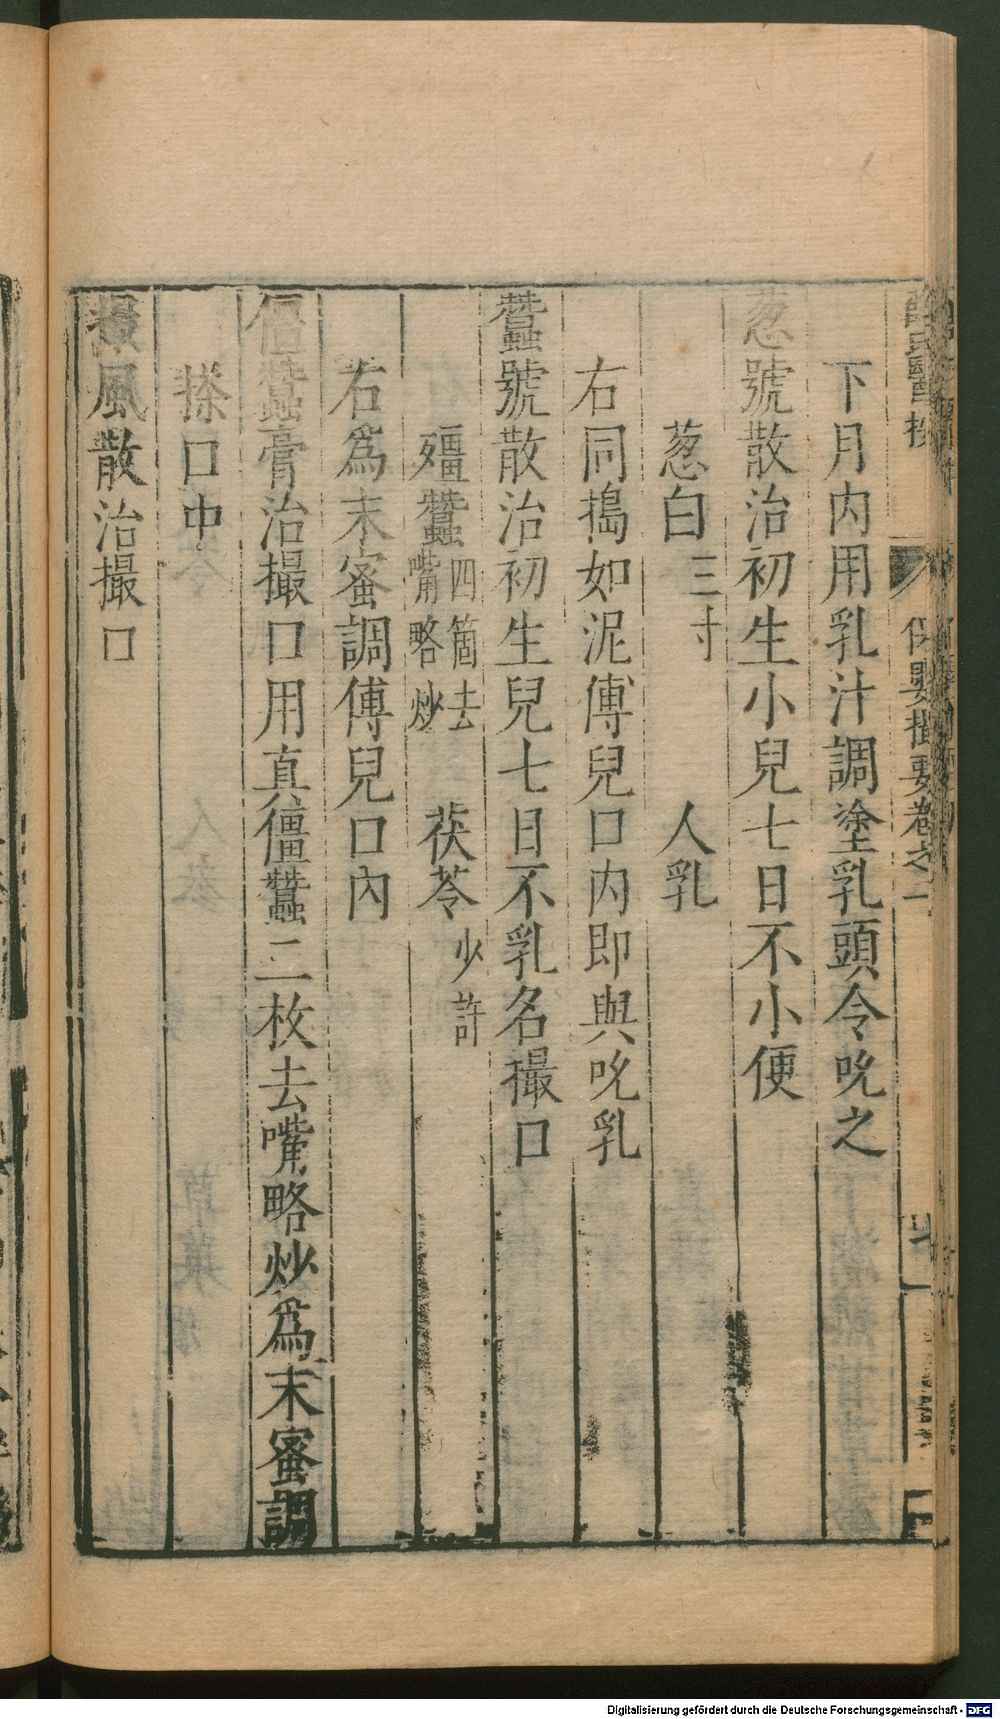 薛氏醫按
保嬰撮要卷之一
下月内用乳汁調塗乳頭令吮之
葱號散治初生小兒七日不小便
葱白三寸 人乳
右同搗如泥傅兒口内即與吮乳
蠶號散治初生兒七日不乳名撮口
殭蠶四箇去嘴略炒 茯苓少許
右爲末蜜調傅兒口內
僵蠶膏治撮口用真僵蠶二枚去嘴略炒爲末蜜調
搽口中
撮風散治撮口
Digitalisierung gefördert durch die Deutsche Forschungsgemeinschaft - DFG